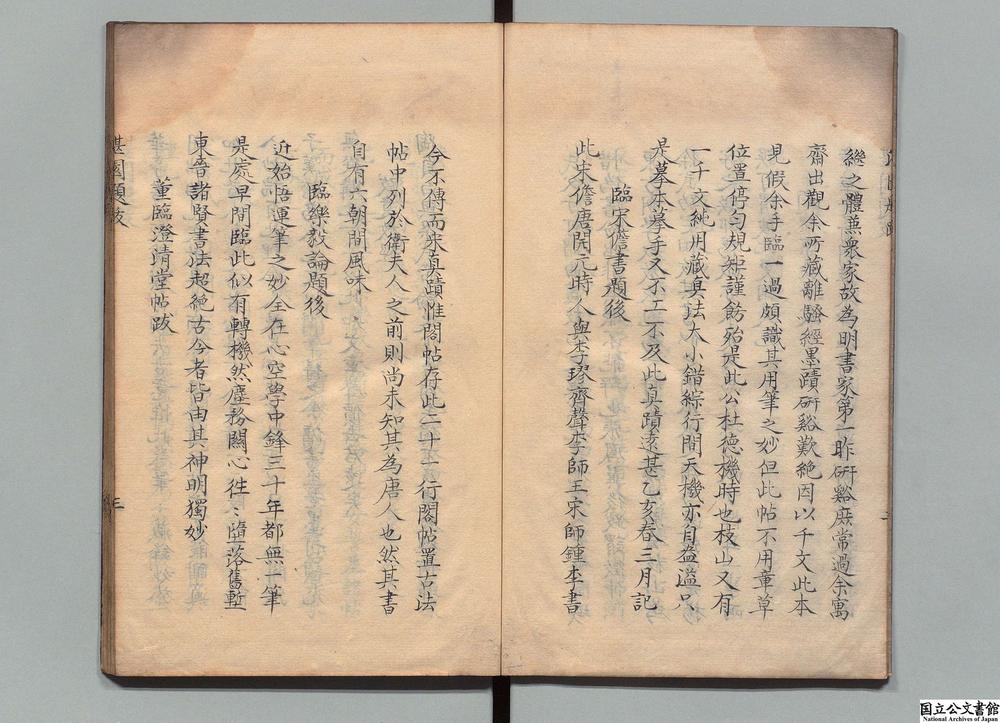 縂之體蕉衆家故為明書家第一昨研谿庶常過余寓
齋出觀余所藏離騷經墨蹟研谿歎絶因以千文此本
見假余手臨一過頗識其用筆之妙但此帖不用章草
位置停勻規矩謹飭殆是此公杜德機時也枝山又有
一千文純用藏真法大小錯綜行間天機亦自盎溢只
是摹本摹手又不工不及此真蹟遠甚乙亥春三月記
臨宋儋書題後
此宋儋唐開元時人與李璆齊聲李師王宋師鍾李書
今不傳而宋真蹟惟閣帖存此二十一行閣帖置古法
帖中列於衛夫人之前則尚未知其為唐人也然其書
自有六朝間風味
臨樂毅論題後
近始悟運筆之妙全在心空學中鋒三十年都無一筆
是處早間臨此似有轉機然塵務關心往〻墮落舊塹
東晉諸賢書法超絶古今者皆由其神明獨妙
董臨澄清堂帖跋
湛園題跋
三
国立公文書館
National Archives of Japan